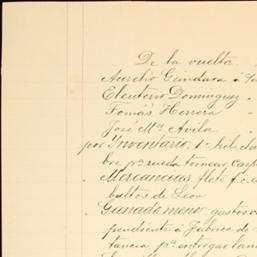 De la vuelta
Aurelio Gándara á
Eleuterio Dominguez
Tomás Herrera
José Mª Avila
por Inventario, 1
bre pª rueda tornear
Mercancias flete f.c.
bultos de Leon
Ganado menor gastos
pendiente á Fábrica de
tancia, pª entregar